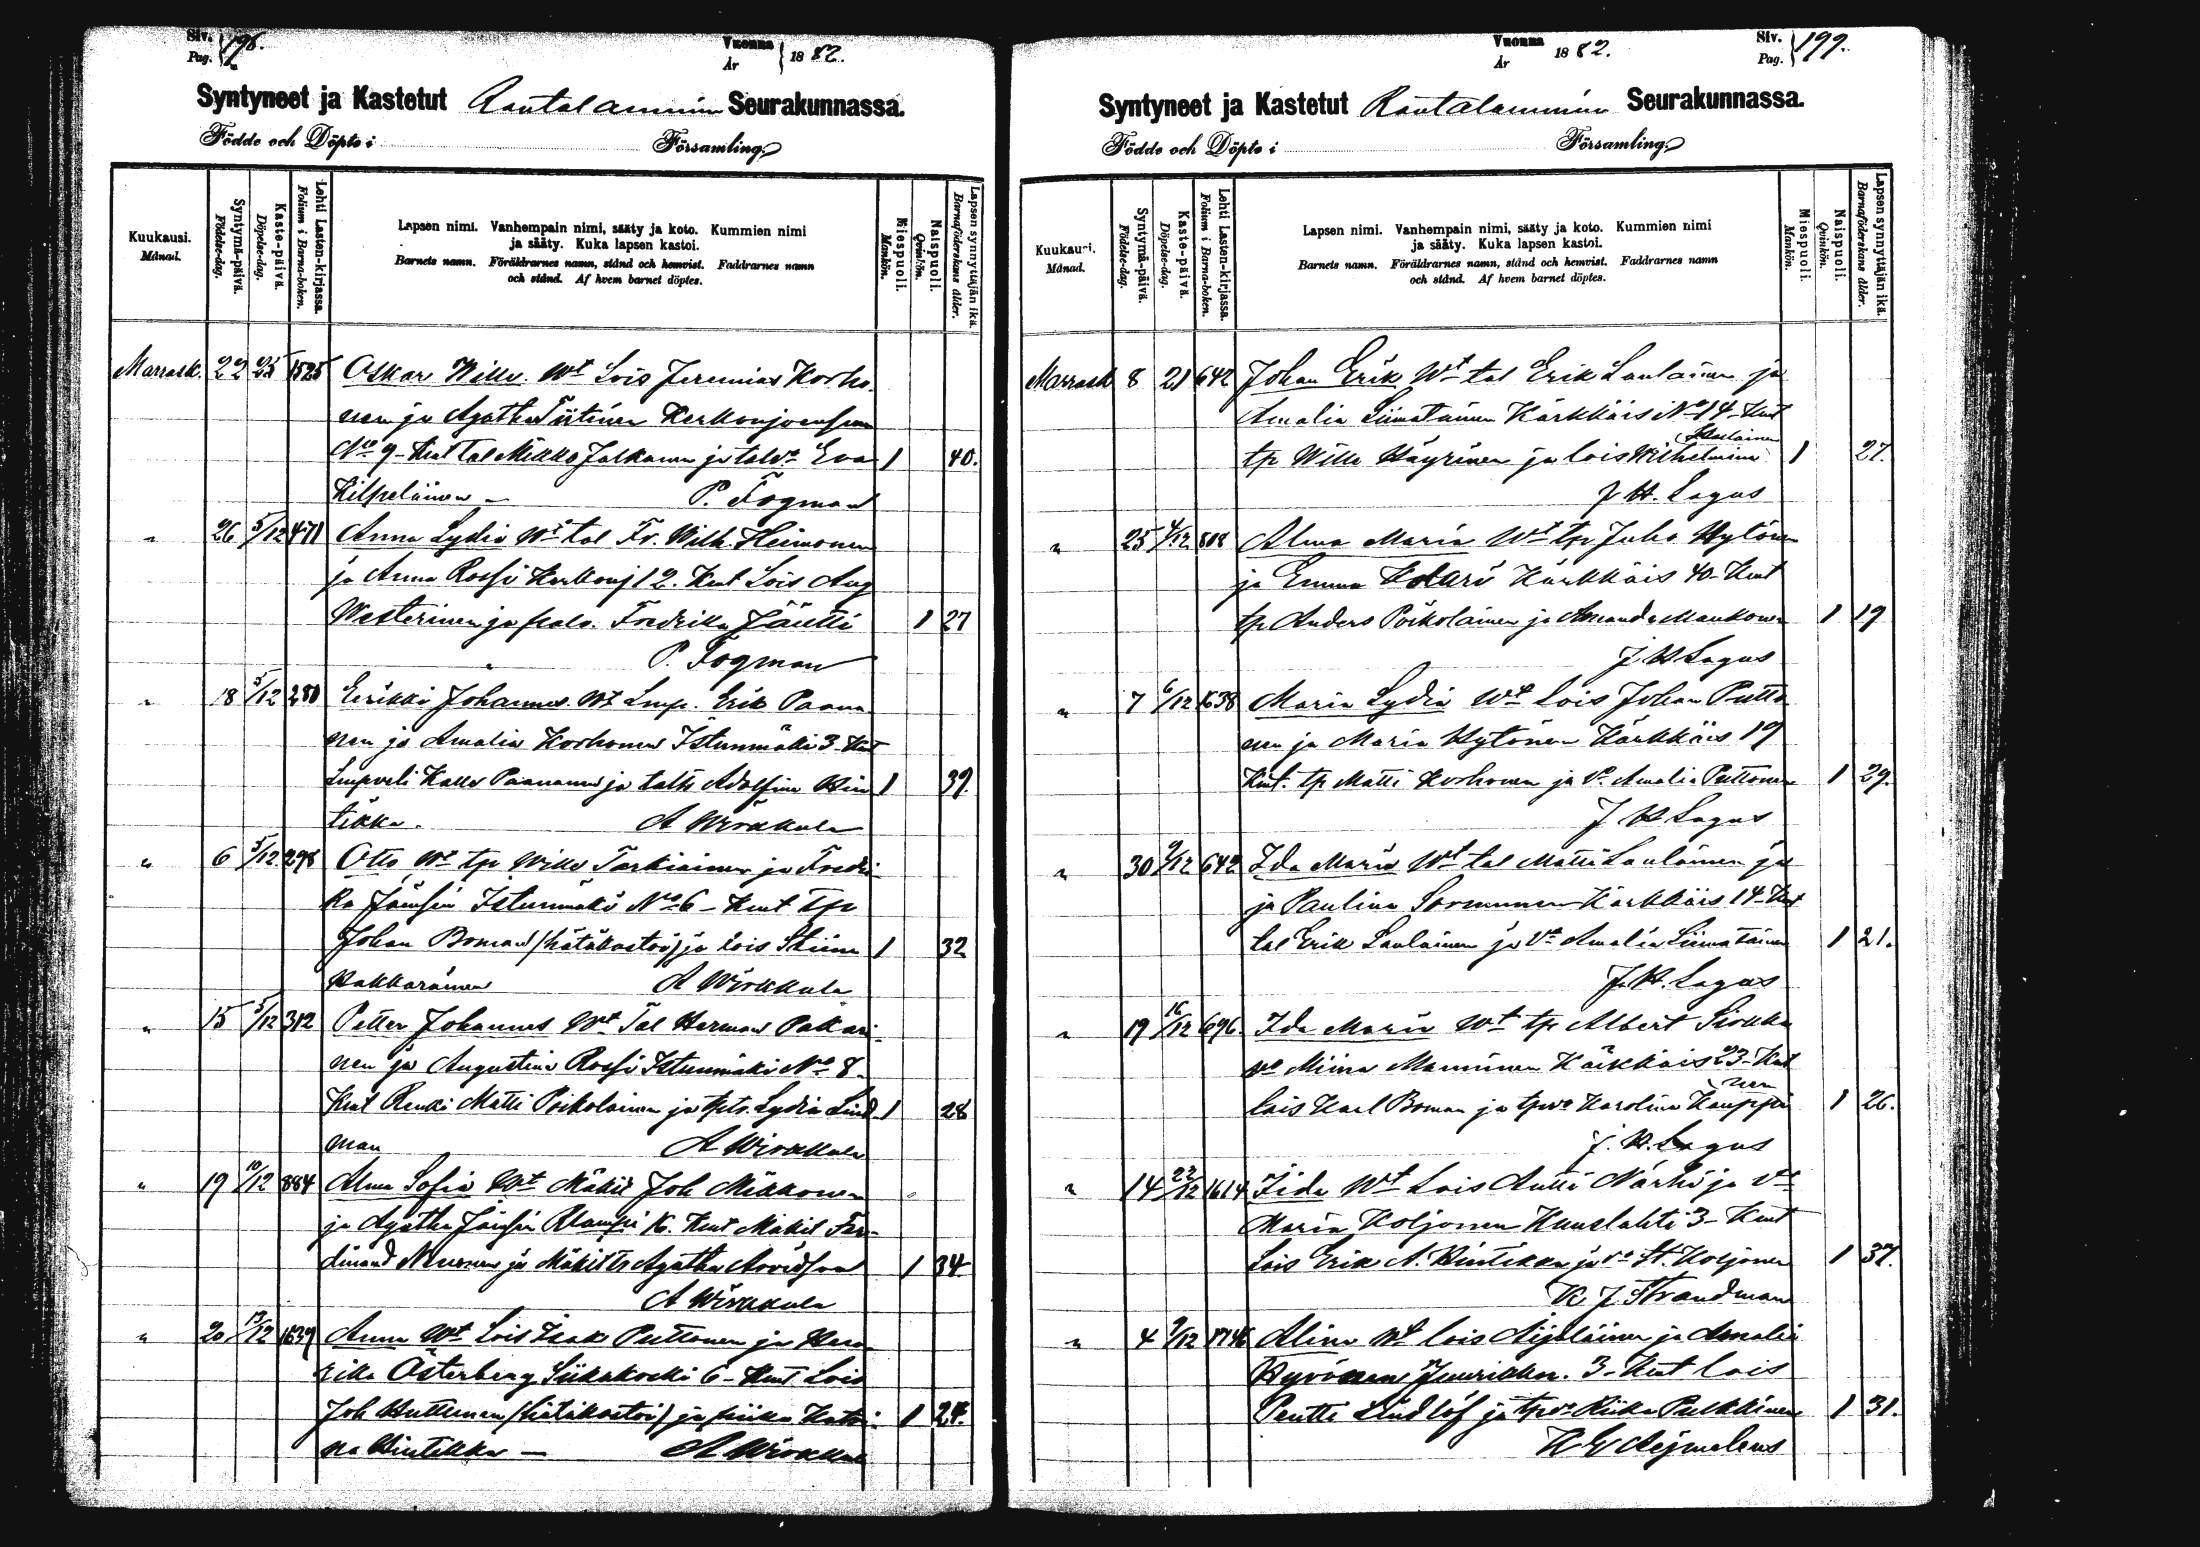 Siv. Pag. 198. Vuonna År 1882.
Syntyneet ja Kastetut Rautalammin Seurakunnassa.
Födde och Döpte i Församling.
Kuukausi. Månad.
Syntymä-päivä. Födelse-dag.
Kaste-päivä. Döpelse-dag.
Lehti Lasten-kirjassa. Folium i Barna-boken.
Lapsen nimi. Vanhempain nimi, sääty ja koto. Kummien nimi
ja sääty. Kuka lapsen kastoi.
Barnets namn. Föräldrarnes namn, stånd och hemvist. Faddrarnes namn
och stånd. Af hvem barnet döptes.
Miespuoli. Mankön.
Naispuoli. Qvinkön.
Lapsen synnyttäjän ikä. Barnaföderskans ålder.
Marrask. 22 25 1525 Oskar Wille. Wt Lois Jeremias Korho-
nen ja Agatha Tiitinen Kerkonjoensuu
No 9 - Kut tal Mikko Jalkanen ja talvo Eva 1 40.
Kilpeläinen - P. Fogman
" 26 5/12 471 Anna Lydia Wt tal Fr. Wilh. Heimonen
ja Anna Rossi Kerkonj 12. Kut Lois Aug
Westerinen ja Fredrika Jäntti 1 27
P. Fogman
" 18 5/12 280 Eerikki Johannes Wt Lmp. Erik Paana-
nen ja Amalia Korhonen Istunmäki 3 - Kut
Lmpveli Kalle Paananen ja taltr Adolfina Hin 1 39.
tikka. A Wirkkula
" 6 5/12 298 Otto Wt tp Wille Tarkiainen ja Fredri-
ka Jämsén Istunmäki No 6 - Kut tp
Johan Boman (hätäkastoi) ja lois Stiina 1 32
Kakkarainen A Wirkkula
" 15 5/12 312 Petter Johannes Wt Tal Herman Pakari-
nen ja Augustina Rossi Istunmäki No 8.
Kut Renki Matti Poikolainen ja tptr. Lydia Lind 1 28
man A Wirkkula
" 19 10/12 884 Alma Sofia Wt Mäkit Joh Mikkonen
ja Agatha Jämsén 16. Kut Mäkit Fer-
dinand Nuuinen ja Mäkittr Agatha Arvidson 1 34
A Wirkkula
" 20 1639 Anna Wt Lois Isak Puttonen ja Hen-
rika Österberg Siikakoski 6 - Kut Lois
Joh Huttunen (hätäkastoi) ja piika Katri- 1 24.
na Hintikka - A Wirkkula
Vuonna År 1882. Siv. Pag. 199.
Syntyneet ja Kastetut Rautalammin Seurakunnassa.
Födde och Döpte i Församling.
Kuukausi. Månad.
Syntymä-päivä. Födelse-dag.
Kaste-päivä. Döpelse-dag.
Lehti Lasten-kirjassa. Folium i Barna-boken.
Lapsen nimi. Vanhempain nimi, sääty ja koto. Kummien nimi
ja sääty. Kuka lapsen kastoi.
Barnets namn. Föräldrarnes namn, stånd och hemvist. Faddrarnes namn
och stånd. Af hvem barnet döptes.
Miespuoli. Mankön.
Naispuoli. Qvinkön.
Lapsen synnyttäjän ikä. Barnaföderskans ålder.
Marrask 8 21 642 Johan Erik Wt tal Erik Laulainen ja
Amalia Liimatainen Kärkkäis No 14 - Kut
tp Wille Häyrinen ja lois Wilhelmina 1 27.
J H. Lagus
" 25 4/12 808 Alma Maria Wt tp Juho Hytönen
ja Emma Kolari Kärkkäis 40 - Kut
tp Anders Poikolainen ja Amanda Maukonen 1 19
J. H Lagus
" 7 6/12 1638 Maria Lydia Wt Lois Johan Putto
nen ja Maria Hytönen Kärkkäis 19
Kut. tp Matti Korhonen ja vo Amalia Puttonen 1 29.
J H Lagus
" 30 9/12 642 Ida Maria Wt tal Matti Laulainen ja
ja Paulina Sormunen Kärkkäis 14 - Kut
tal Erik Laulainen ja Amalia Liimatainen 1 21.
J. H. Lagus
" 19 16/12 696. Ida Maria Wt tp Albert Sirkka
vo Miina Manninen Kärkkäis 23 - Kut
lois Karl Boman ja tpvo Karolina Kauppi nen 1 26.
J. H. Lagus
" 14 22/12 1614 Iida Wt Lois Antti Närhi ja vo
Maria Koljonen Kuuslahti 3 - Kut
Lois Erik A. Hintikka ja vo St. Koljonen 1 37.
K J Strandman
" 4 9/12 Alina Wt lois Aijäläinen ja Amalia
Hyvönen Juurikkn. 3 - Kut lois
Pentti Lindlöf ja tpvo Riika Pulkkinen 1 31.
K E Aejmelæus